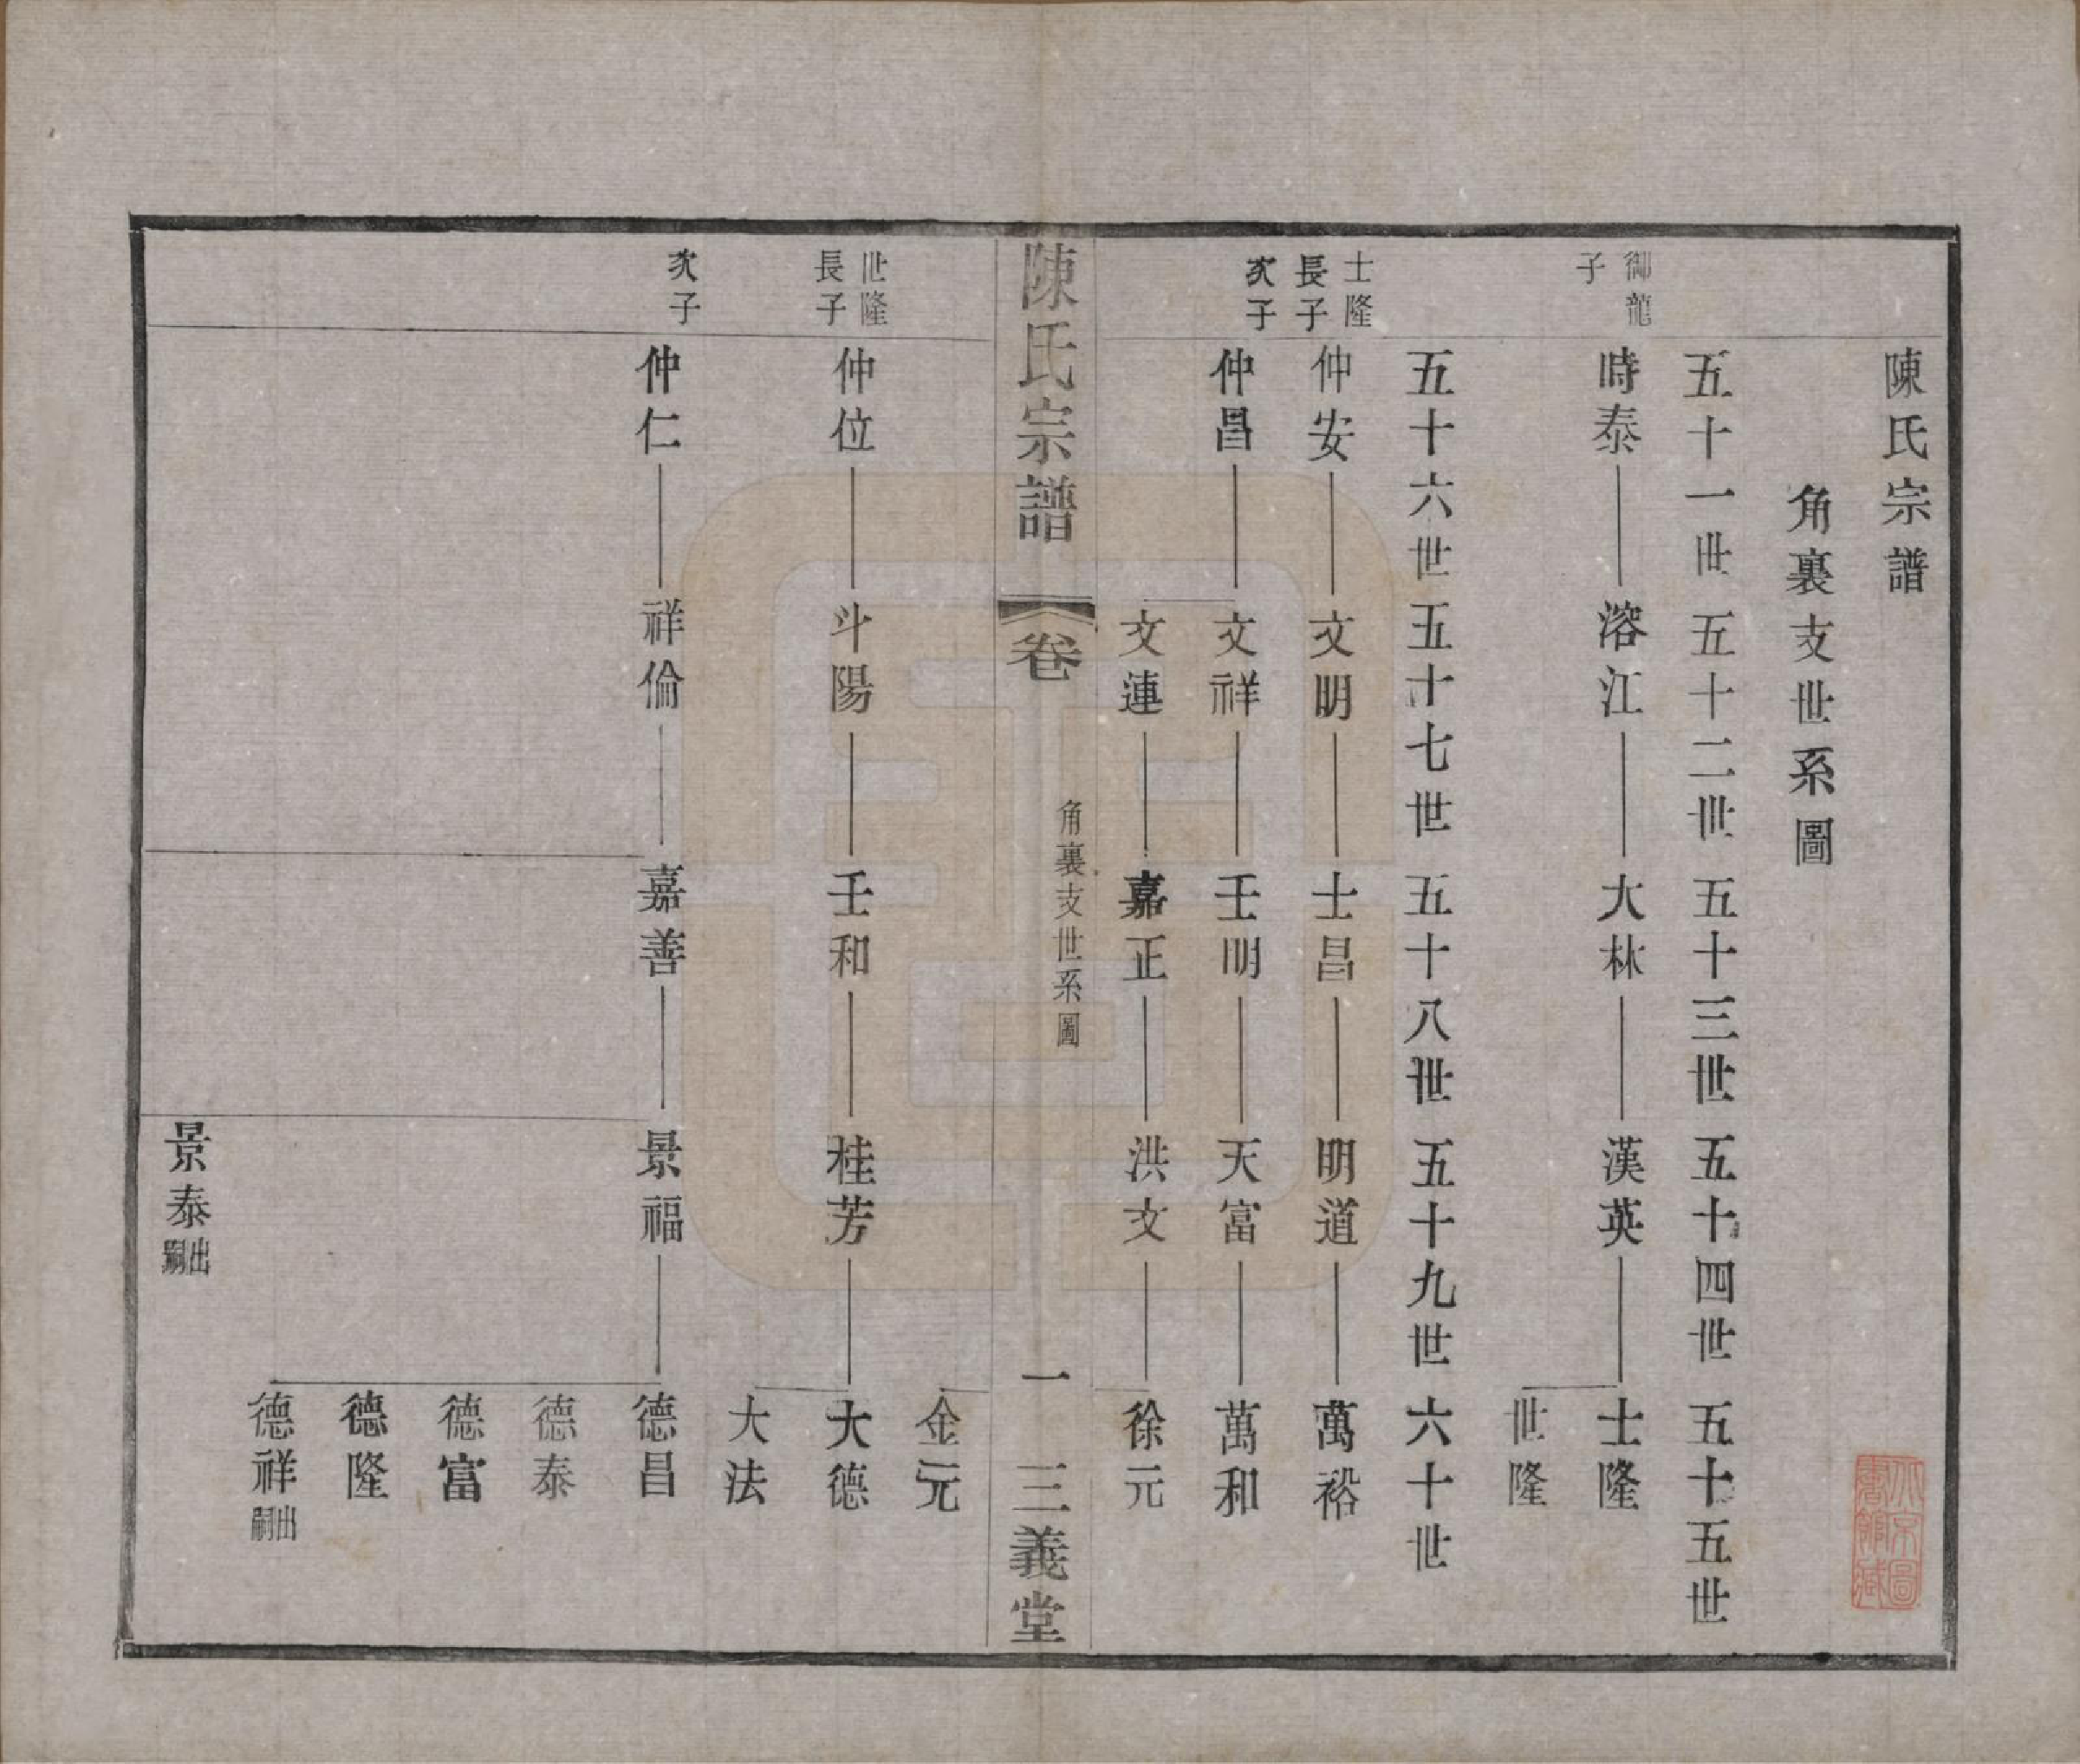 陳氏宗譜
角裏支世系圖
五十一世 五十二世 五十三世 五十四世 五十五世
御龍子
時泰 溶江 大林 漢英 士隆
世隆
五十六世 五十七世 五十八世 五十九世 六十世
士隆長子
仲安 文明 士昌 明道 萬裕
次子
仲昌 文祥 壬明 天富 萬和
文連 嘉正 洪文 徐元
陳氏宗譜 卷 角裏支世系圖 一 三義堂
金元
世隆長子
仲位 斗陽 壬和 桂芳 大德
大法
次子
仲仁 祥倫 嘉善 景福 德昌
德泰
德富
德隆
德祥出嗣
景泰出嗣